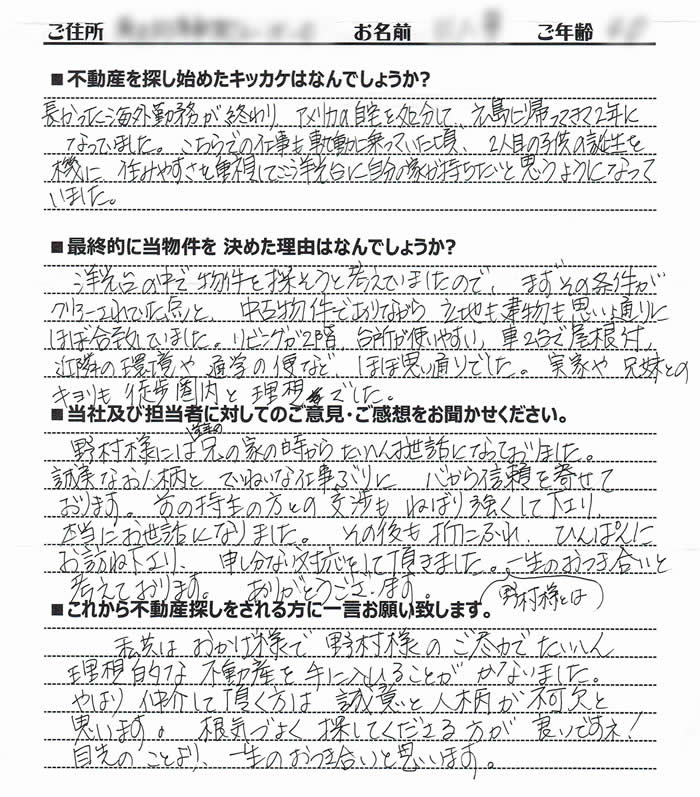 ご住所 お名前 ご年齢
■不動産を探し始めたキッカケはなんでしょうか?
長かった海外勤務が終わり、アメリカの自宅を処分して、広島に帰ってきて2年に
なっていました。こちらでの仕事も軌動に乗っていた頃、2人目の子供の誕生を
機に、住みやすさを重視してここ洋光台に自分の家が持ちたいと思うようになって
いました。
■最終的に当物件を 決めた理由はなんでしょうか?
洋光台の中で物件を探そうと考えていましたので、まずその条件が
クリアーされていた点と、中古物件でありながら 立地も建物も思い通りに
ほぼ合致していました。リビングが2階、台所が使いやすい、車2台で屋根付、
近隣の環境や 通学の便など、ほぼ思い通りでした。実家や兄妹との
キョリも 徒歩圏内と 理想 でした。
■当社及び担当者に対してのご意見・ご感想をお聞かせください。
野村様には 兄の家の時から たいへんお世話になっておりました。
誠実なお人柄と ていねいな仕事ぶりに 心から信頼を寄せて
おります。前の持主の方との交渉も ねばり強くして下さり
本当にお世話になりました。その後も折にふれ、ひんぱんに
お訪ね下さり、申し分ない対応をして頂きました。一生のおつき合いと
考えております。ありがとうございます。
野村様とは
■これから不動産探しをされる方に一言お願い致します。
私共は おかげ様で 野村様の ご尽力でたいへん
理想的な 不動産を 手に入れることが かないました。
やはり 仲介して頂く方は 誠意と人柄が不可欠と
思います。根気づよく 探してくださる方が 良いですネ!
目先の ことより、一生のおつき合いと思います。